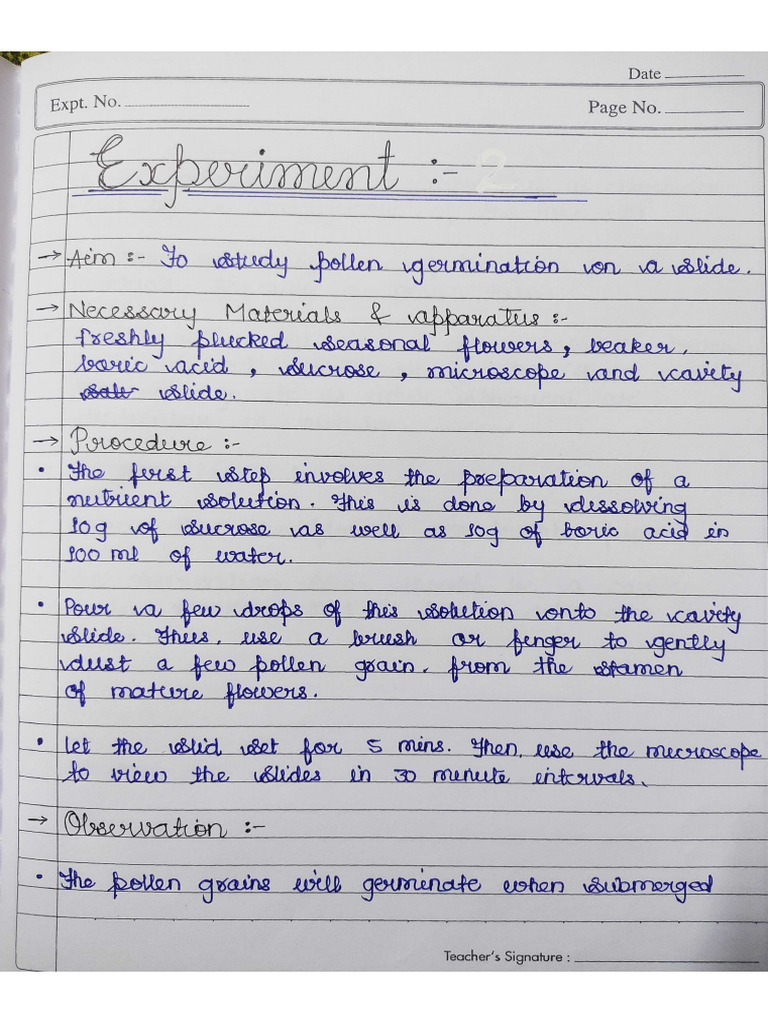 Date
Expt. No.
Page No.
Experiment :- 2
→ Aim :- To study pollen germination on a slide.
→ Necessary Materials & apparatus :-
freshly plucked seasonal flowers, beaker,
boric acid, sucrose, microscope and cavity
salt slide.
→ Procedure :-
• The first step involves the preparation of a
nutrient solution. This is done by dissolving
10g of sucrose as well as 10g of boric acid in
100 ml of water.
• Pour a few drops of this solution onto the cavity
slide. Thus, use a brush or finger to gently
dust a few pollen grain, from the stamen
of mature flowers.
• Let the slid set for 5 mins. Then, use the microscope
to view the slides in 30 minute intervals.
→ Observation :-
• The pollen grains will germinate when submerged
Teacher's Signature :